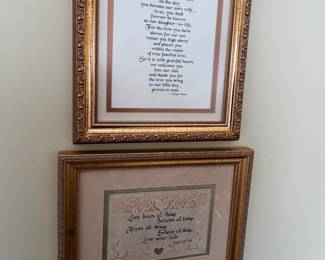 on the day
you become our son's wife...
to us, you shall
forever be known
as our daughter-in-life.
For the love you have
shown for our son
raises you high above
and places you
within the realm
of true familial love.
So it is with grateful hearts
we welcome you
into our clan
and thank you for
the love you bring
to our little boy...
grown to man.
Love bears all things
Believes all things
Hopes all things
Endures all things
Love never fails